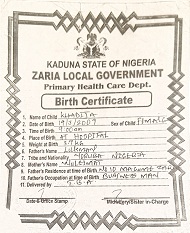 KADUNA STATE OF NIGERIA
ZARIA LOCAL GOVERNMENT
Primary Health Care Dept.
Birth Certificate
1. Name of Child KHADIJA
2. Date of Birth 19/1/2009 Sex of Child FEMALE
3. Time of Birth 9:00am
4. Place of Birth AT HOSPITAL
5. Weight at Birth 3.7kg
6. Father's Name LUKMAN
7. Tribe and Nationality YORUBA NIGERIA
8. Mother's Name
9. Father's Residence at time of Birth
10. Father's Occupation at time of Birth BUSINESS MAN
11. Delivered by
Date & Office Stamp Midwifery/Sister in-Charge